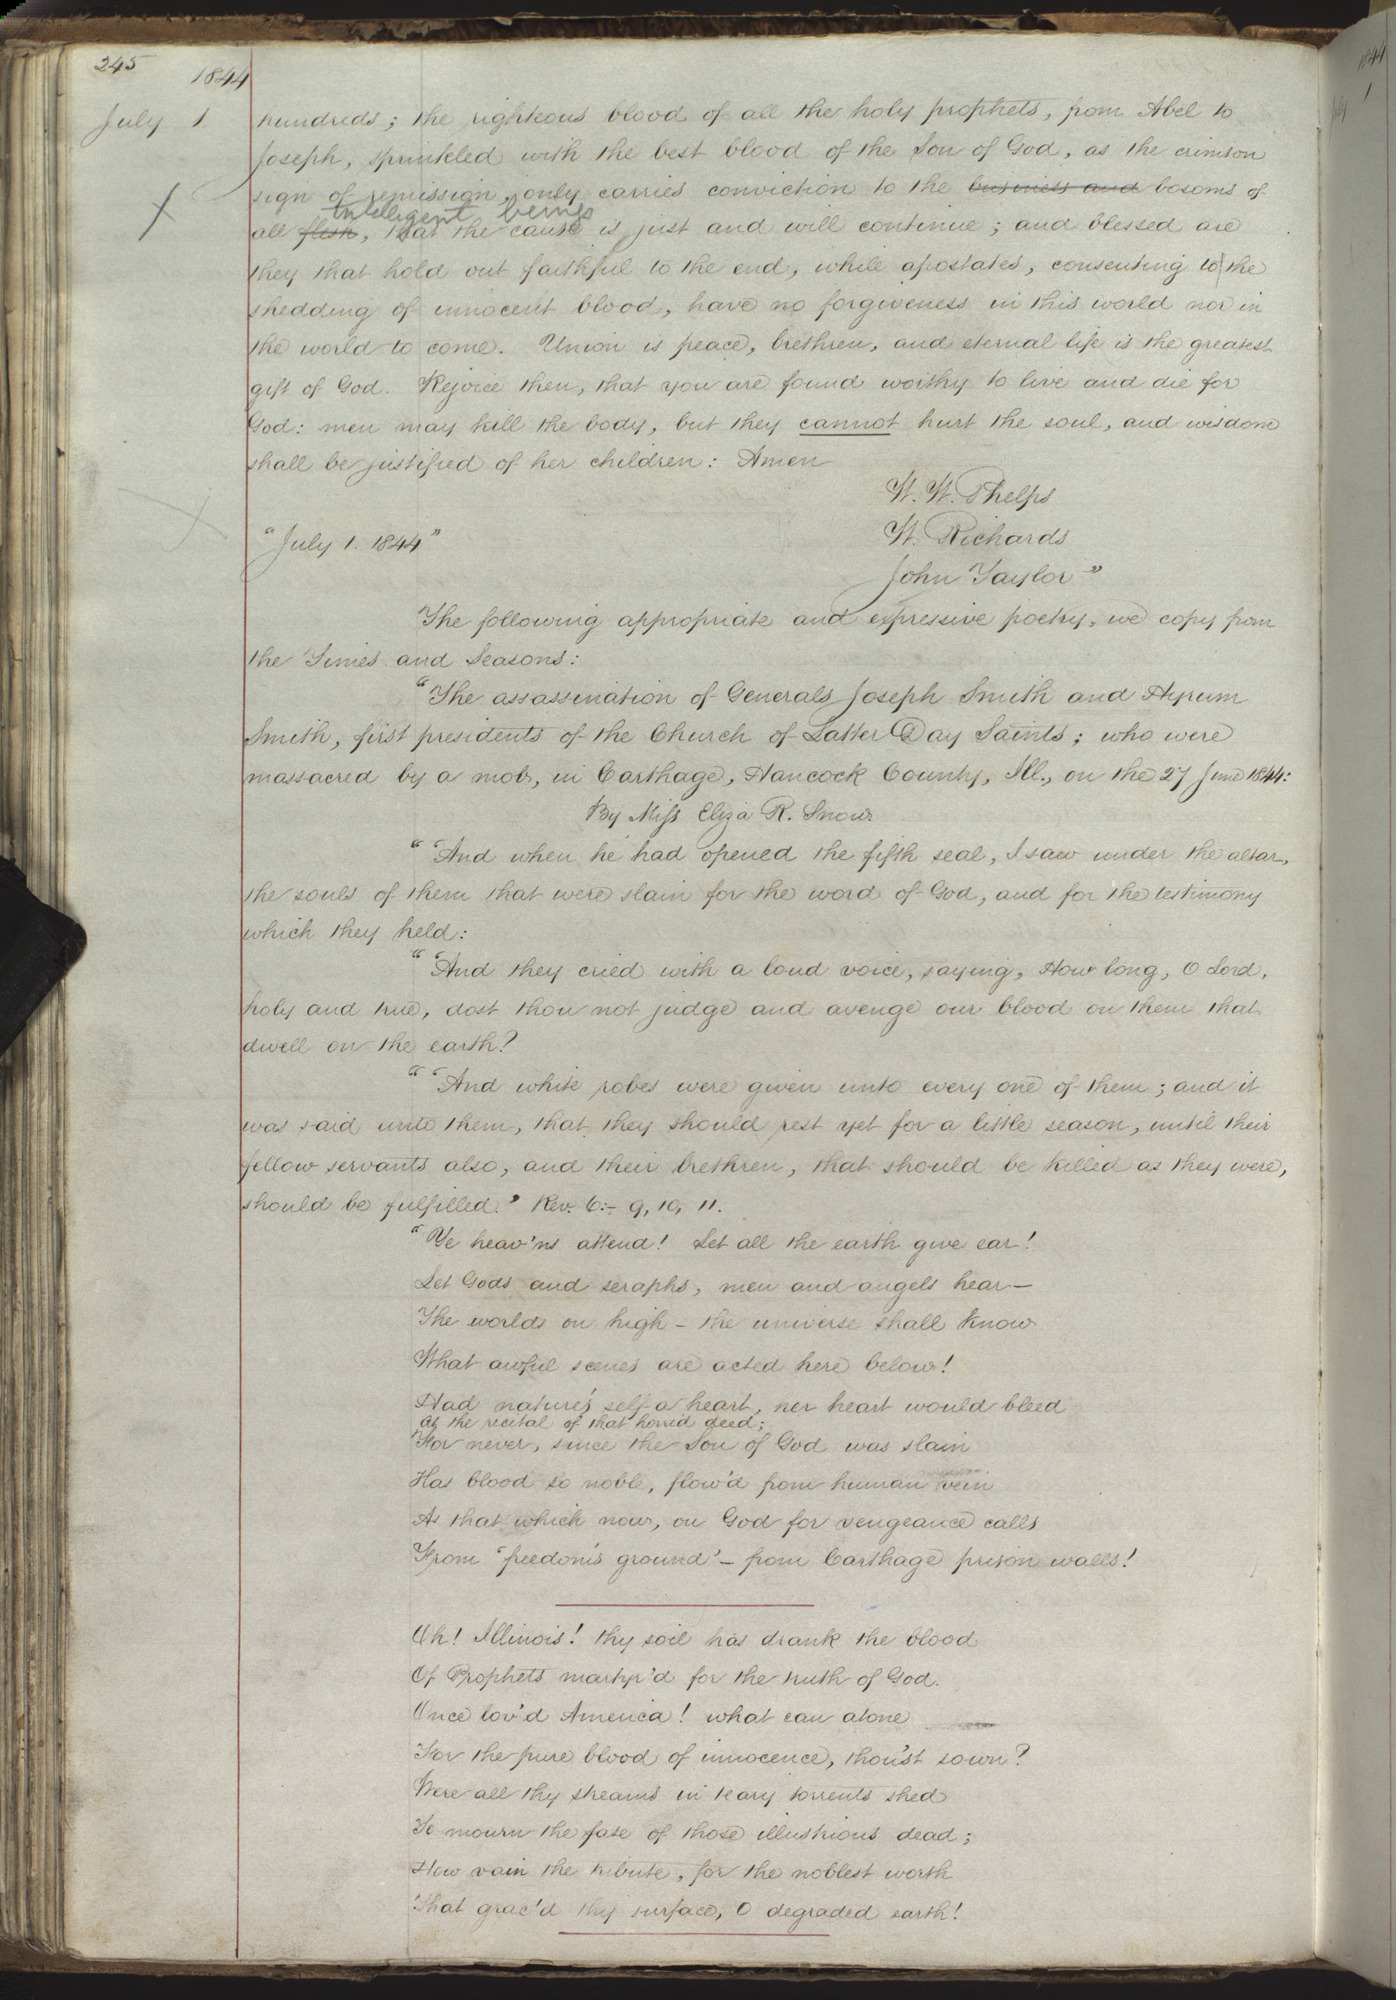 245
1844
July 1.
hundreds; the righteous blood of all the holy prophets, from Abel to
Joseph, sprinkled with the best blood of the Son of God, as the crimson
sign of remission, only carries conviction to the business and bosoms of
intelligent beings
all flesh, that the cause is just and will continue; and blessed are
they that hold out faithful to the end, while apostates, consenting to the
shedding of innocent blood, have no forgiveness in this world nor in
the world to come. Union is peace, brethren, and eternal life is the greatest
gift of God. Rejoice then, that you are found worthy to live and die for
God: men may kill the body, but they cannot hurt the soul, and wisdom
shall be justified of her children: Amen
W. W. Phelps
W. Richards
"July 1. 1844"
John Taylor"
The following appropriate and expressive poetry, we copy from
the Times and Seasons:
"The assassination of Generals Joseph Smith and Hyrum
Smith, first presidents of the Church of Latter Day Saints; who were
massacred by a mob, in Carthage, Hancock County, Ill., on the 27 June 1844:
By Miss Eliza R. Snow.
"'And when he had opened the fifth seal, I saw under the altar,
the souls of them that were slain for the word of God, and for the testimony
which they held:
"'And they cried with a loud voice, saying, How long, O Lord,
holy and true, dost thou not judge and avenge our blood on them that
dwell on the earth?
"'And white robes were given unto every one of them; and it
was said unto them, that they should rest yet for a little season, until their
fellow servants also, and their brethren, that should be killed as they were,
should be fulfilled.' Rev. 6:- 9, 10, 11.
"Ye heav'ns attend! Let all the earth give ear!
Let Gods and seraphs, men and angels hear—
The worlds on high – the universe shall know
What awful scenes are acted here below!
Had nature's self a heart, her heart would bleed
At the recital of that horrid deed;
For never, since the Son of God was slain
Has blood so noble, flow'd from human vein
As that which now, on God for vengeance calls
From 'freedom's ground' – from Carthage prison walls!
Oh! Illinois! thy soil has drank the blood
Of Prophets martyr'd for the truth of God.
Once lov'd America! what can atone
For the pure blood of innocence, thou'st sown?
Were all thy streams in teary torrents shed
To mourn the fate of those illustrious dead;
How vain the tribute, for the noblest worth
That grac'd thy surface, O degraded earth!